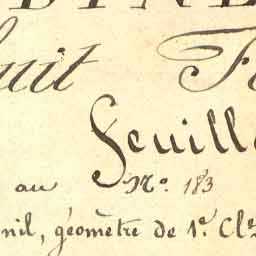 uit
Feuill
au Nº. 183
nil, géomètre de 1e. Cl